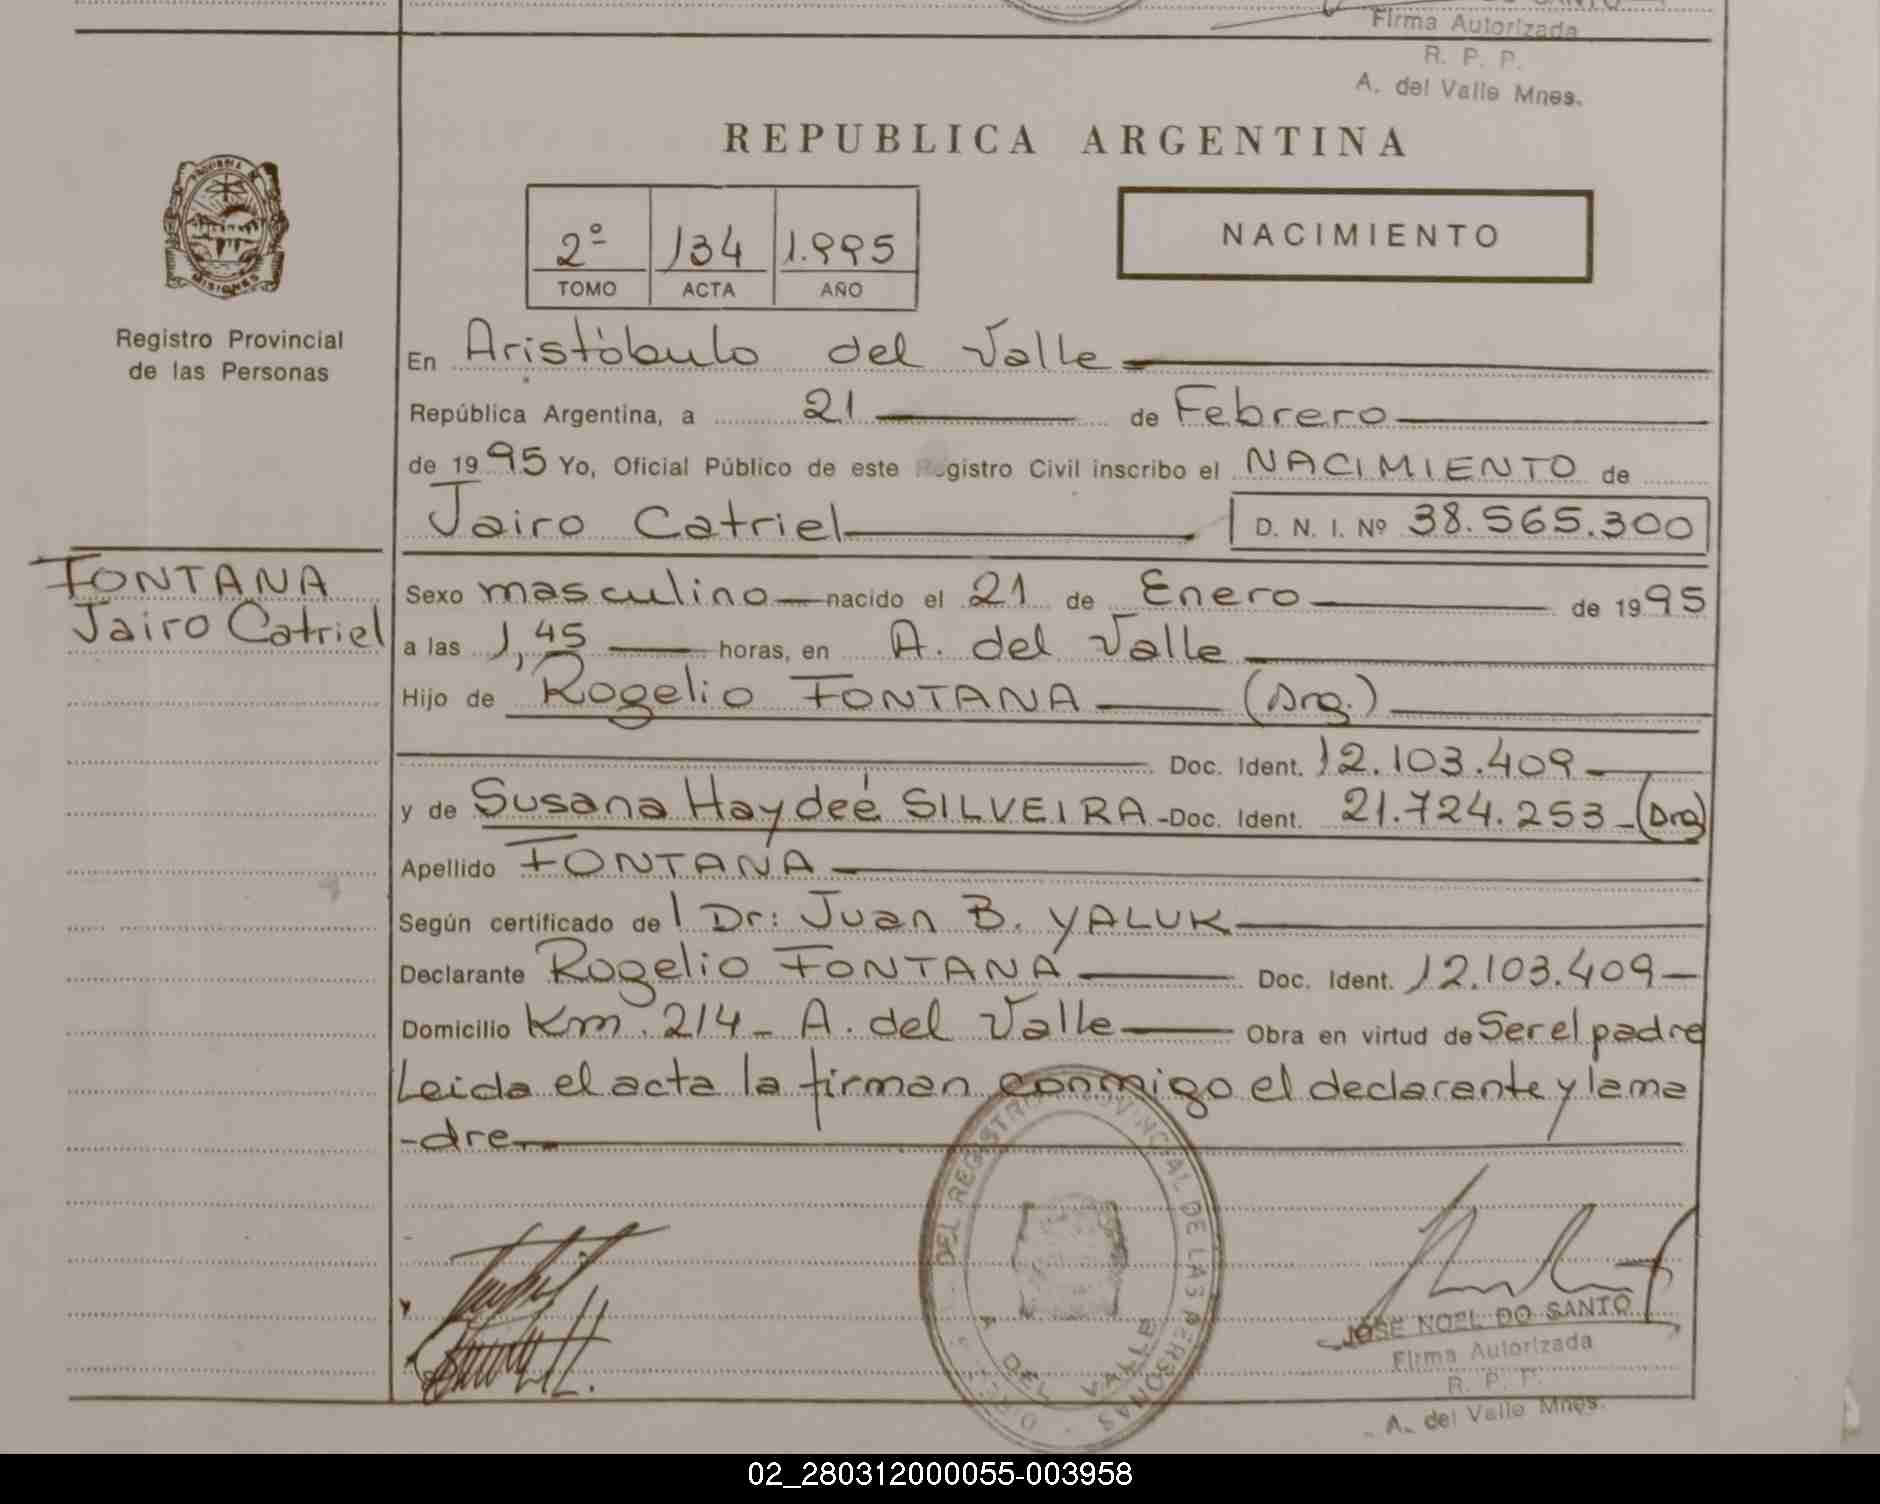 Firma Autorizada
R. P. P.
A. del Valle Mnes.
REPUBLICA ARGENTINA
2º 134 1.995
TOMO ACTA AÑO
NACIMIENTO
PROVINCIA DE
MISIONES
Registro Provincial
de las Personas
En Aristóbulo del Valle
República Argentina, a 21 de Febrero
de 1995 Yo, Oficial Público de este Registro Civil inscribo el NACIMIENTO de
Jairo Catriel D. N. I. Nº 38.565.300
FONTANA
Jairo Catriel
Sexo masculino nacido el 21 de Enero de 1995
a las 1,45 horas, en A. del Valle
Hijo de Rogelio FONTANA (Arg.)
Doc. Ident. 12.103.409
y de Susana Haydeé SILVEIRA - Doc. Ident. 21.724.253 - (Arg)
Apellido FONTANA
Según certificado del Dr: Juan B. YALUK
Declarante Rogelio FONTANA Doc. Ident. 12.103.409
Domicilio Km. 214 - A. del Valle Obra en virtud de Ser el padre
Leida el acta la firman conmigo el declarante y la ma
-dre.
DEL REGISTRO PROVINCIAL DE LAS PERSONAS
A. DEL VALLE
JOSE NOEL DO SANTO
Firma Autorizada
R. P. P.
A. del Valle Mnes.
02_280312000055-003958